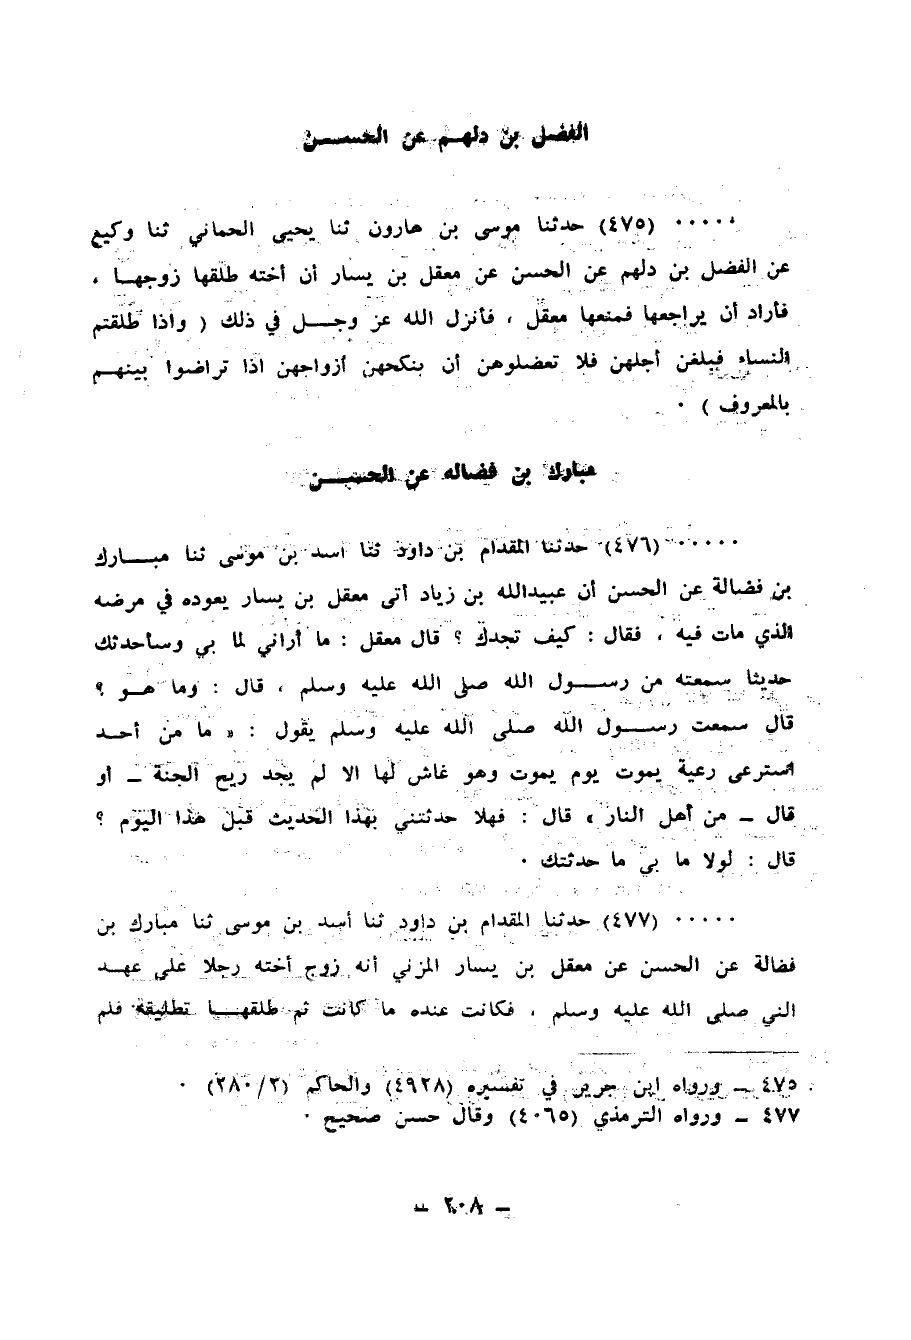 الفضل بن دلهم عن الحسن
..... (٤٧٥) حدثنا موسى بن هارون ثنا يحيى الحماني ثنا وكيع
عن الفضل بن دلهم عن الحسن عن معقل بن يسار أن أخته طلقها زوجها ،
فأراد أن يراجعها فمنعها معقل ، فأنزل الله عز وجل في ذلك ( واذا طلقتم
النساء فبلغن أجلهن فلا تعضلوهن أن ينكحهن أزواجهن اذا تراضوا بينهم
بالمعروف ) .
مبارك بن فضاله عن الحسن
..... (٤٧٦) حدثنا المقدام بن داود ثنا اسد بن موسى ثنا مبارك
بن فضالة عن الحسن أن عبيدالله بن زياد أتى معقل بن يسار يعوده في مرضه
الذي مات فيه ، فقال : كيف تجدك ؟ قال معقل : ما أراني لما بي وسأحدثك
حديثا سمعته من رسول الله صلى الله عليه وسلم ، قال : وما هو ؟
قال سمعت رسول الله صلى الله عليه وسلم يقول : « ما من أحد
استرعى رعية يموت يوم يموت وهو غاش لها الا لم يجد ريح الجنة ـ أو
قال ـ من أهل النار » قال : فهلا حدثتني بهذا الحديث قبل هذا اليوم ؟
قال : لولا ما بي ما حدثتك .
..... (٤٧٧) حدثنا المقدام بن داود ثنا أسد بن موسى ثنا مبارك بن
فضالة عن الحسن عن معقل بن يسار المزني أنه زوج أخته رجلا على عهد
النبي صلى الله عليه وسلم ، فكانت عنده ما كانت ثم طلقها تطليقة فلم
٤٧٥ ـ ورواه ابن جرير في تفسيره (٤٩٢٨) والحاكم (٢/٢٨٠) .
٤٧٧ ـ ورواه الترمذي (٤٠٦٥) وقال حسن صحيح .
ـ ٢٠٨ ـ